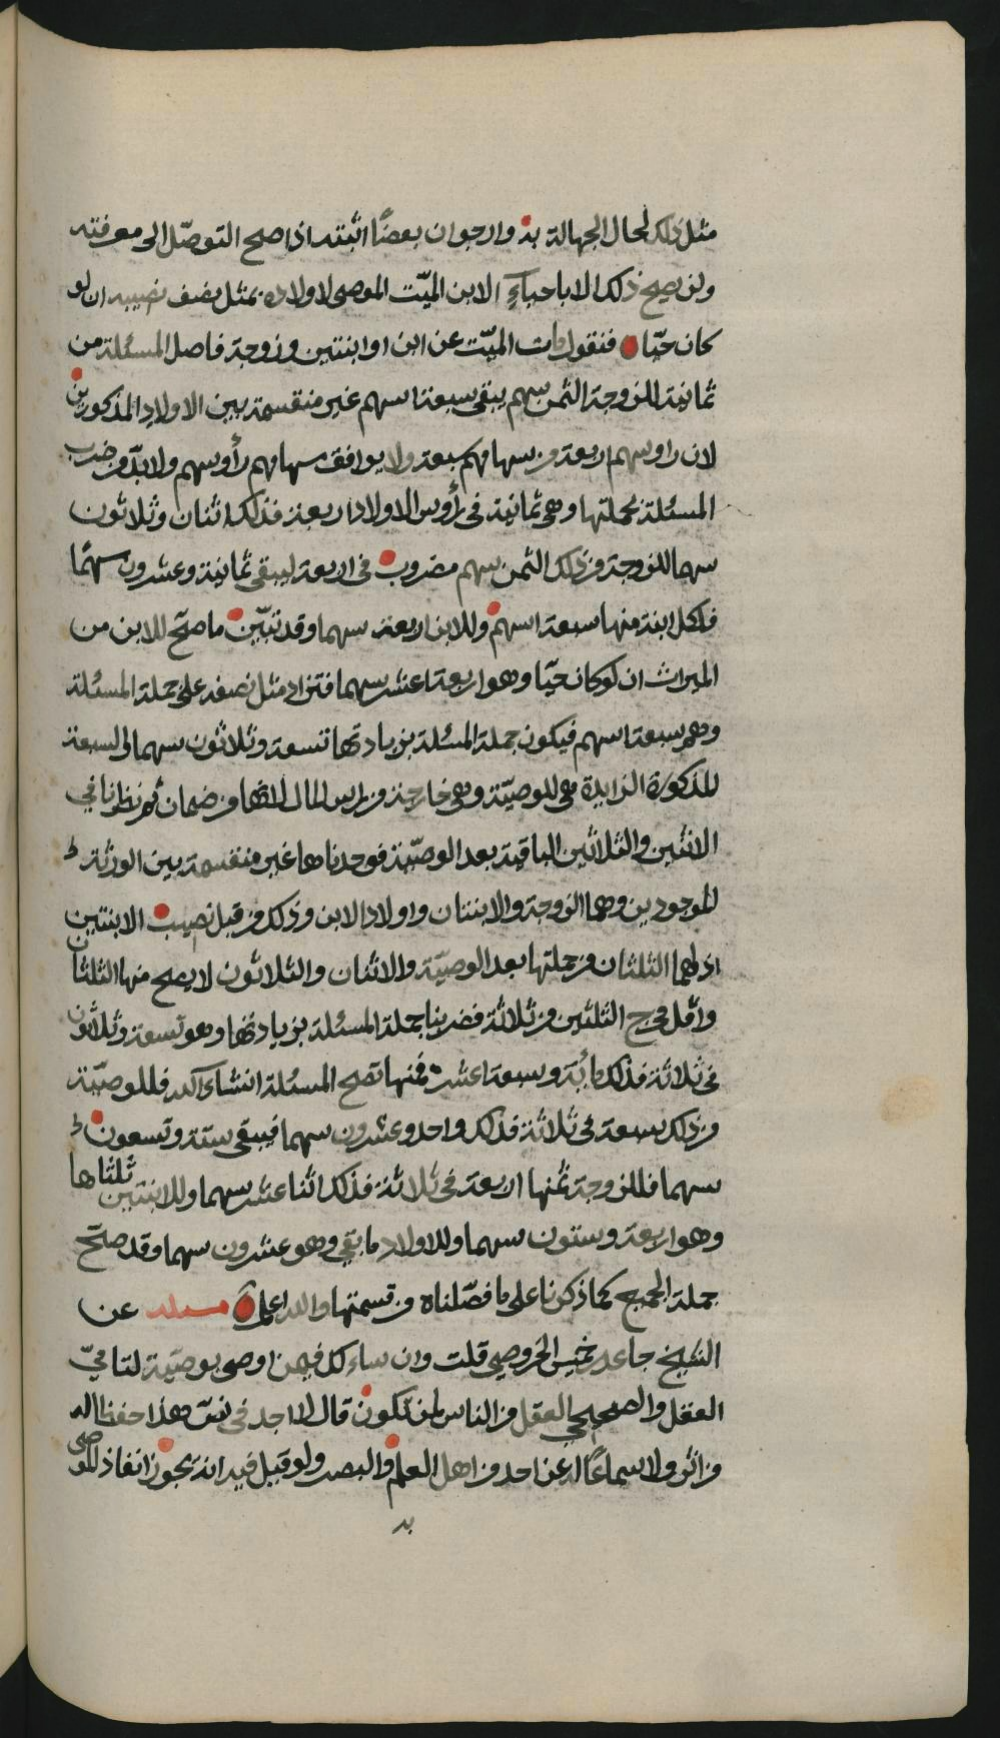 مثل ذلك لحال الجهالة به وارجوان بعضًا اثبته اذا صح التوصّل الى معرفته
ولن يصح ذلك الا باحياء الابن الميّت الموصى لاولاده بمثل نصف نصيبه ان لو
كان حيّا فنقول مات الميّت عن ابن او ابنتين وزوجة فاصل المسئلة من
ثمانية للزوجة الثمن سهم يبقى سبعة اسهم غير منقسمة بين الاولاد المذكورين
لان راوسهم اربعة وسهامهم سبعة ولا يوافق سهامهم رأوسهم ولا بدّ من ضرب
المسئلة بجملتها وهي ثمانية في رأوس الاولاد اربعة فذلك اثنان وثلاثون
سهما للزوجة من ذلك الثمن سهم مضروب في اربعة ليبقى ثمانية وعشرون سهمًا
فلكل ابنة منها سبعة اسهم وللابن اربعة سهما وقد تبيّن ما صحّ للابن من
الميراث ان لو كان حيّا وهو اربعة اعشر سهما فتزاد مثل نصفه على جملة المسئلة
وهو سبعة اسهم فيكون جملة المسئلة بزيادتها تسعة وثلاثون سهما لسبعة
المذكورة الزايدة هي للوصيّة وهي خارجة من راس المال من ضمان ثم نظرنا في
الاثنين والثلاثين الباقية بعد الوصيّة فوجدناها غير منقسمة بين الورثة
الموجودين وهما الزوجة والابنتان واولاد الابن وذلك من قبل نصيب الابنتين
اذ لهما الثلثان من جملتها بعد الوصيّة والاثنان والثلاثون لا يصح منها الثلثان
واقل مخرج الثلثين من ثلاثة فضربنا جملة المسئلة بزيادتها وهو تسعة وثلاثون
في ثلاثة فذلك مائة وسبعة اعشر فمنها تصح المسئلة انشاء الله فللوصيّة
من ذلك سبعة في ثلاثة فذلك واحد وعشرون سهما فيبقى ستة وتسعون
سهما فللزوجة ثمنها اربعة في ثلاثة فذلك اثنا عشر سهما وللابنتين ثلثاها
وهو اربعة وستون سهما وللاولاد ما بقي وهو عشرون سهما وقد صحّ
جملة الجميع كما ذكرنا على ما فصّلناه من قسمتها والله اعلم مسئلة عن
الشيخ جاعد بن خميس الخروصي قلت وان ساءلك فيمن اوصى بوصيّة لتامّي
العقل والصحيحي العقل من الناس لمن تكون قال لا اجد في نفس هذا حفظا له
من اثر ولا سماعًا له عن احد من اهل العلم والبصر ولو قيل فيه انه يجوز انفاذ الموصى
به